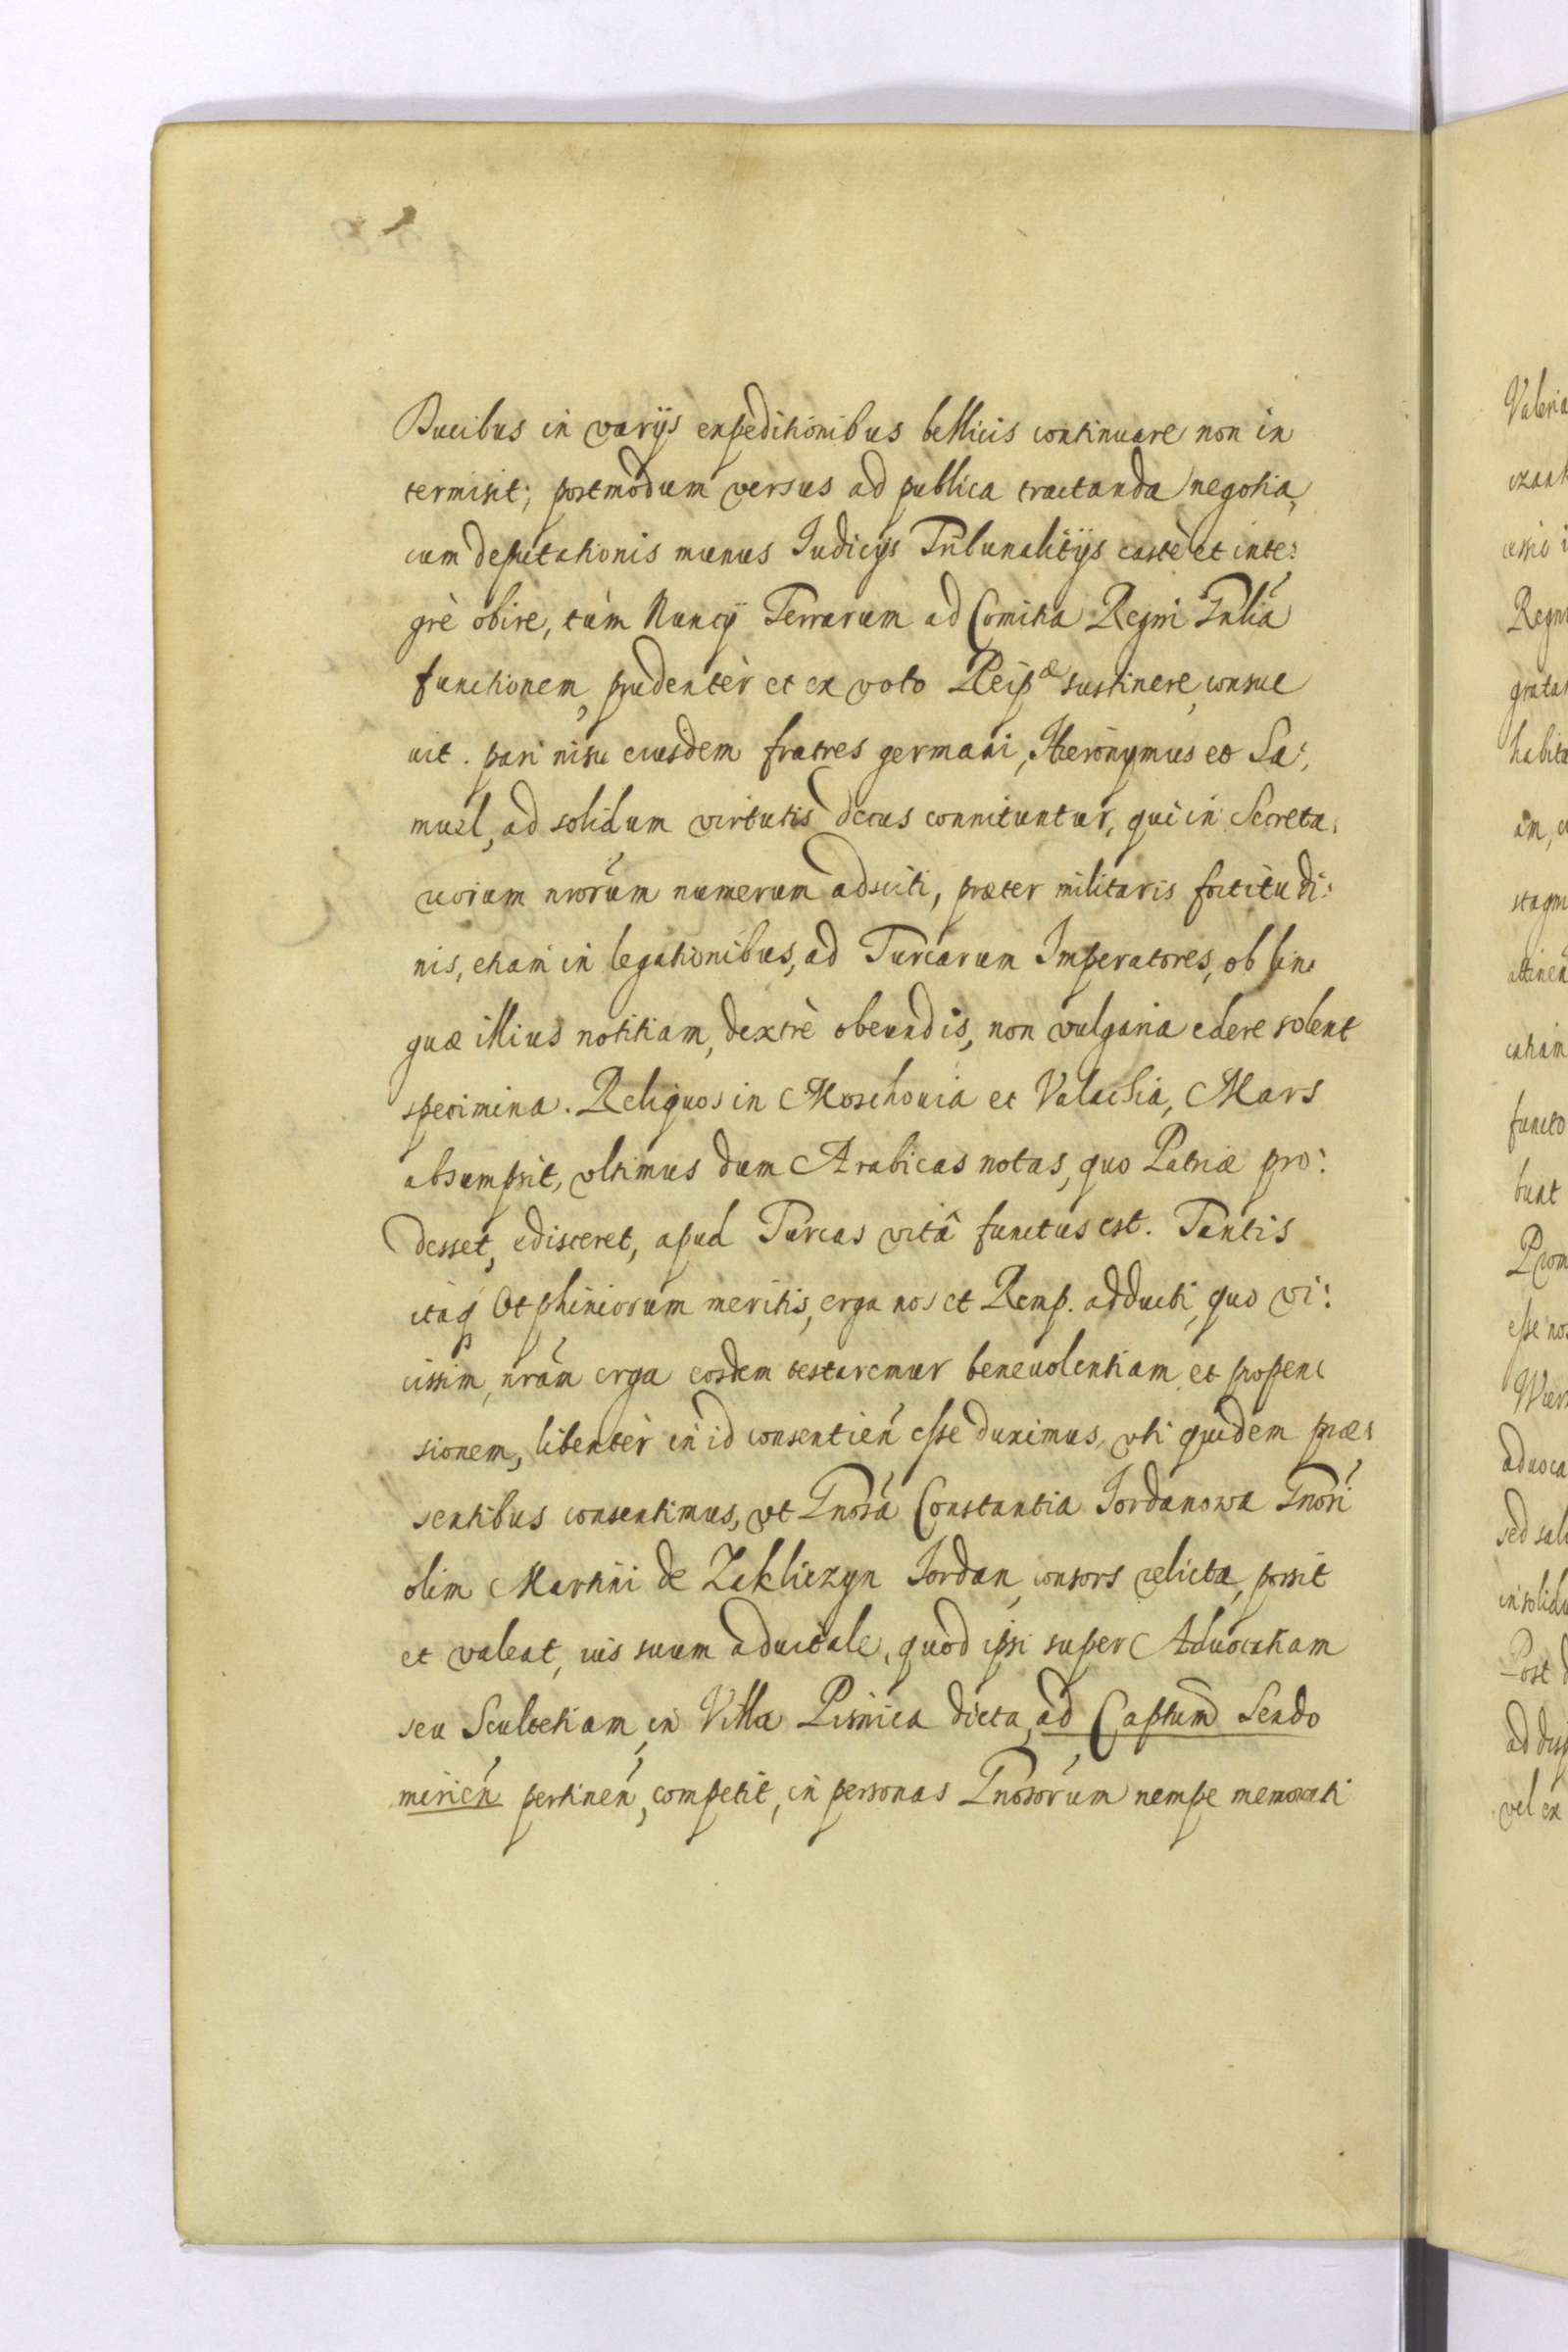 Ducibus in varijs expeditionibus bellicis continuare non in
termisit; postmodum versus ad publica tractanda negotia,
cum deputationis munus Iudicijs Tribunalitijs castè et inte:
grè obire, tùm Nuncij Terrarum ad Comitia Regni Gnlia
functionem, prudentèr et ex voto Reipae sustinere, consue
uit. pari nisu eiusdem fratres germani, Hieronymus et Sa:
muel, ad solidum virtutis decus connituntur, qui in Secreta:
riorum nrorum numerum adsciti, præter militaris fortitudi:
nis, etiam in legationibus, ad Turcarum Imperatores, ob lin:
guæ illius notitiam, dextrè obeundis, non vulgaria edere solent
specimina. Reliquos in Moschouia et Valachia, Mars
absumpsit, vltimus dum Arabicas notas, quo Patriæ pro:
desset, edisceret, apud Turcas vitâ functus est. Tantis
itaq Otphiniorum meritis, erga nos et Remp. adducti, quo vi:
cissim, nram erga eosdem testaremur beneuolentiam et propen:
sionem, libentèr in id consentien esse duximus, vti quidem præ:
sentibus consentimus, vt Gnosa Constantia Iordanowa Gnosi
olim Martini de Zakliczyn Iordan, consors relicta, possit
et valeat, ius suum aduitale, quod ipsi super Aduocatiam
seu Scultetiam, in Villa Pisnica dicta, ad Captum Sendo
mirien pertinen, competit, in personas Gnosorum nempe memorati
Valeria
Regni
grata
habita
stagni
functo
bunt
esse nos
aduoca
in solidu
Post d
vel ex